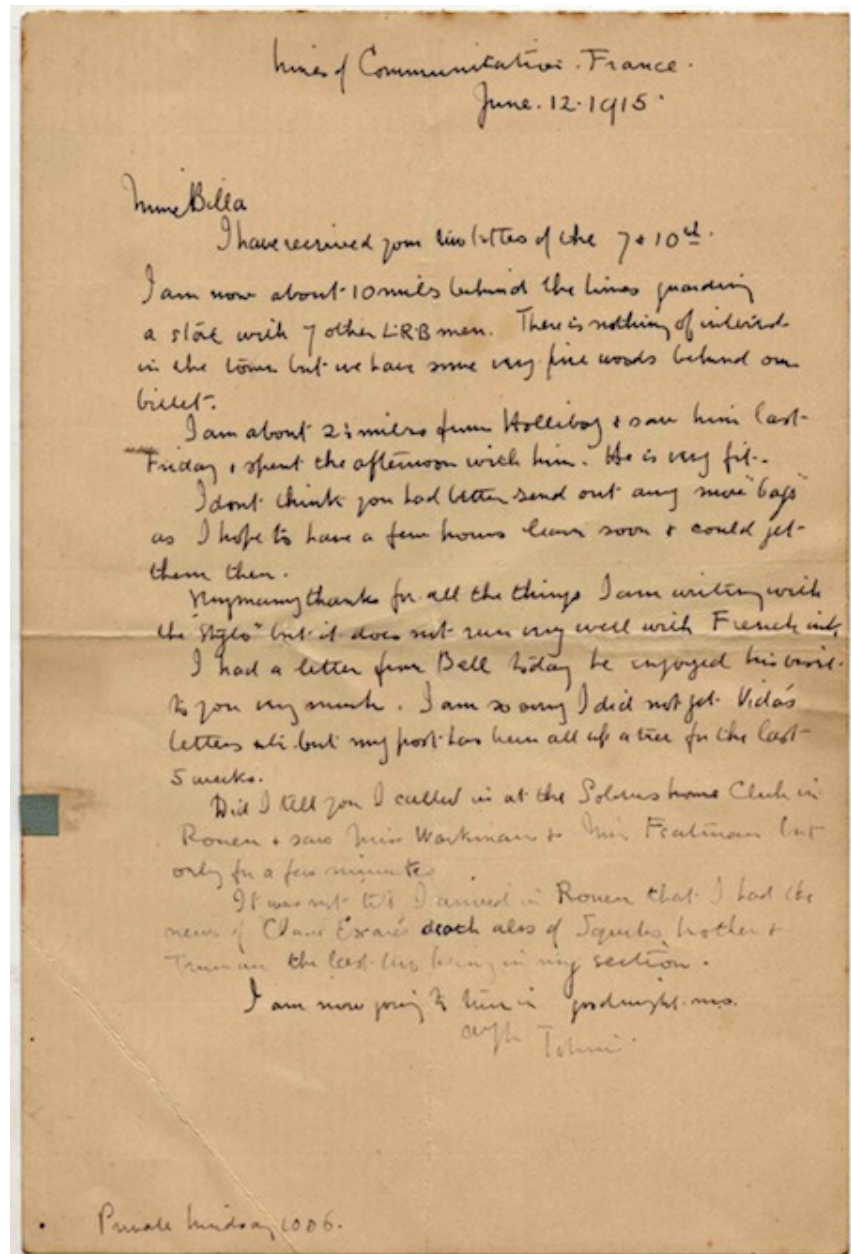 Lines of Communication. France.
June. 12. 1915.
Mine Billa
I have received your two letters of the 7 & 10th.
I am now about 10 miles behind the lines guarding
a store with 7 other L.R.B men. There is nothing of interest
in the town but we have some very fine woods behind our
billet.
I am about 2½ miles from & saw him last
Friday & spent the afternoon with him. He is very fit.
I dont think you had better send out any more "bags"
as I hope to have a few hours leave soon & could get
them then.
Very many thanks for all the things I am writing with
the "Stylo" but it does not run very well with French ink
I had a letter from Bell today he enjoyed his visit
to you very much. I am so sorry I did not get Vida's
letters etc. but my post has been all up a tree for the last
5 weeks.
Did I tell you I called in at the Soldiers home Club in
Rouen & saw Miss Workman & Miss but
only for a few minutes
It was not till I arrived in Rouen that I had the
news of death also of brother &
Truman the last two being in my section.
I am now going to turn in goodnight.

Private Lindsay 1006.